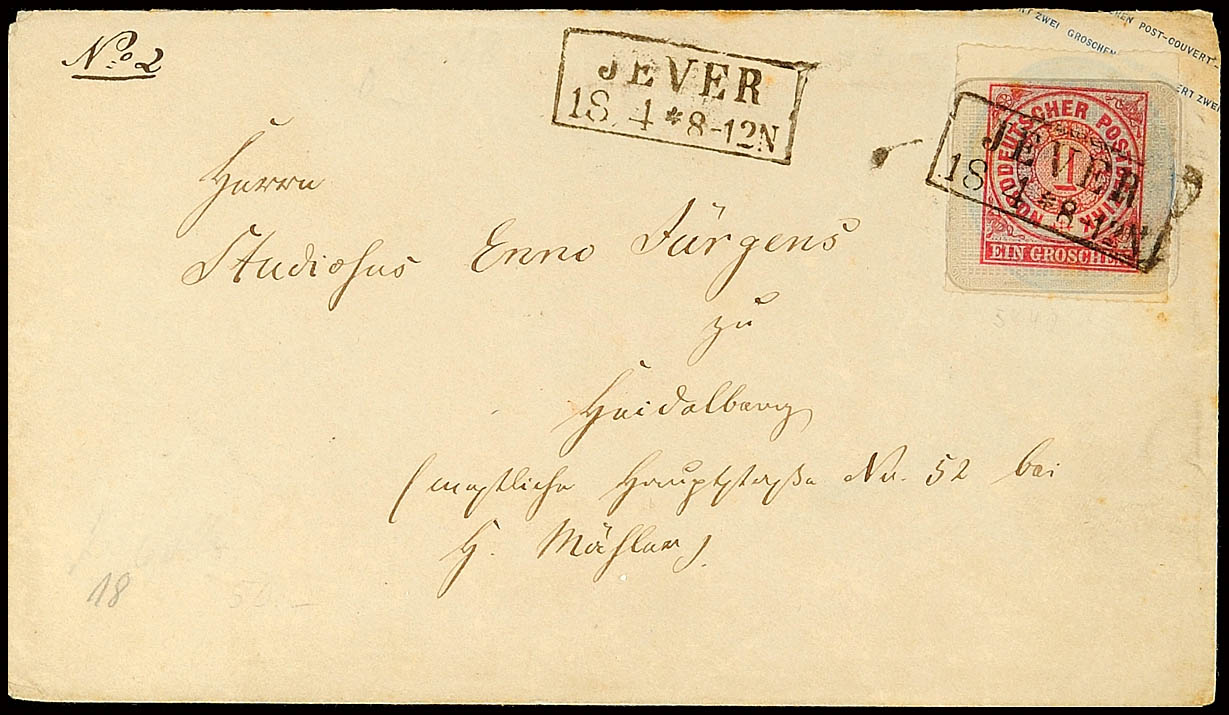 No 2
JEVER
18 4 * 8-12N
CHEN POST-COUVERT
RT ZWEI GROSCHEN
ERT ZWEI
NORDDEUTSCHER POSTBEZIRK
1
EIN GROSCHEN
JEVER
18 4 * 8-12N
Herrn
Studiosus Enno Jürgens
zu
Heidelberg
(westliche Hauptstraße No. 52 bei
H. Mähler)
18
50.–